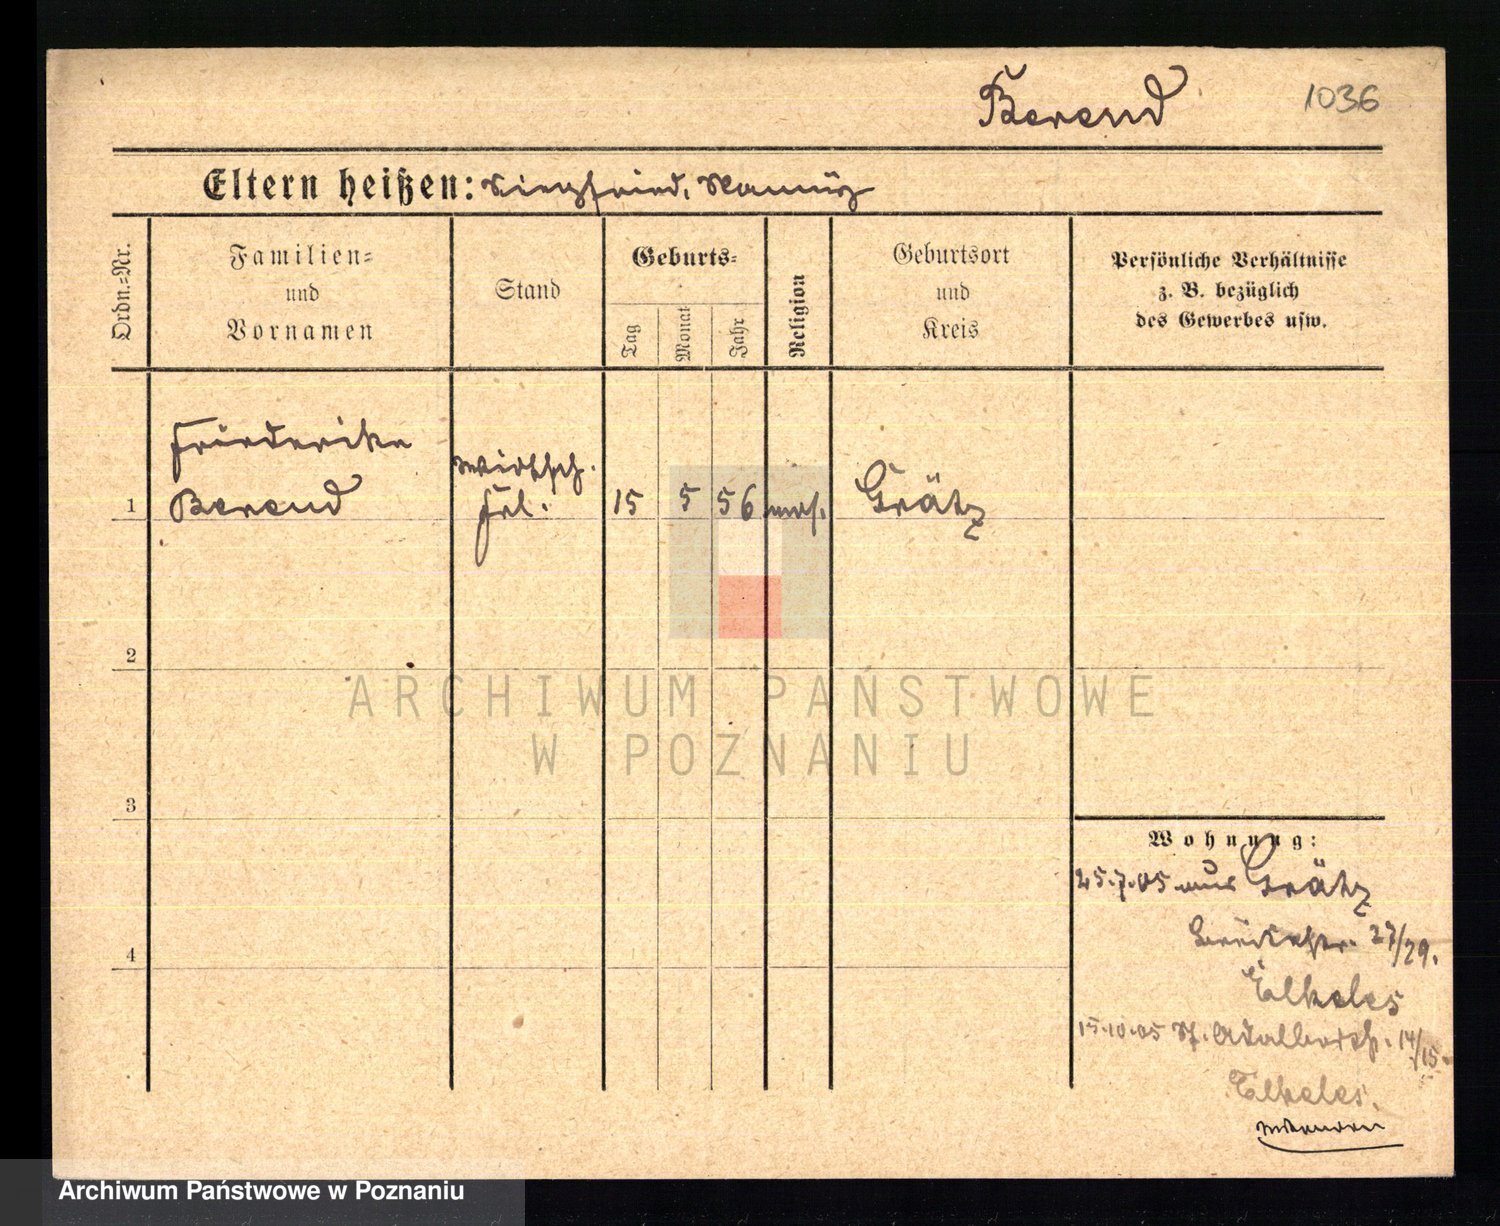 Berend
1036
Eltern heißen: Siegfried,
Ordn.-Nr.
Familien-
und
Vornamen
Stand
Geburts-
Tag
Monat
Jahr
Religion
Geburtsort
und
Kreis
Persönliche Verhältnisse
z. B. bezüglich
des Gewerbes usw.
1
Friederike
Berend
Wirtsch.
Frl.
15
5
56
mos.
Grätz
2
3
4
Wohnung:
25.7.05 aus Grätz
27/29.
Elkeles
15.10.05 St. Adalbertstr. 14/15.
Elkeles.
ARCHIWUM PAŃSTWOWE
W POZNANIU
Archiwum Państwowe w Poznaniu